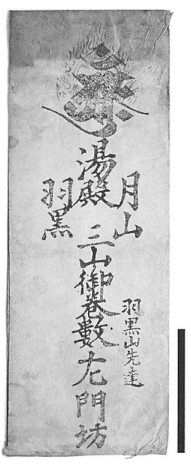 月山
湯殿
羽黒
三山御巻数左門坊
羽黒山先達